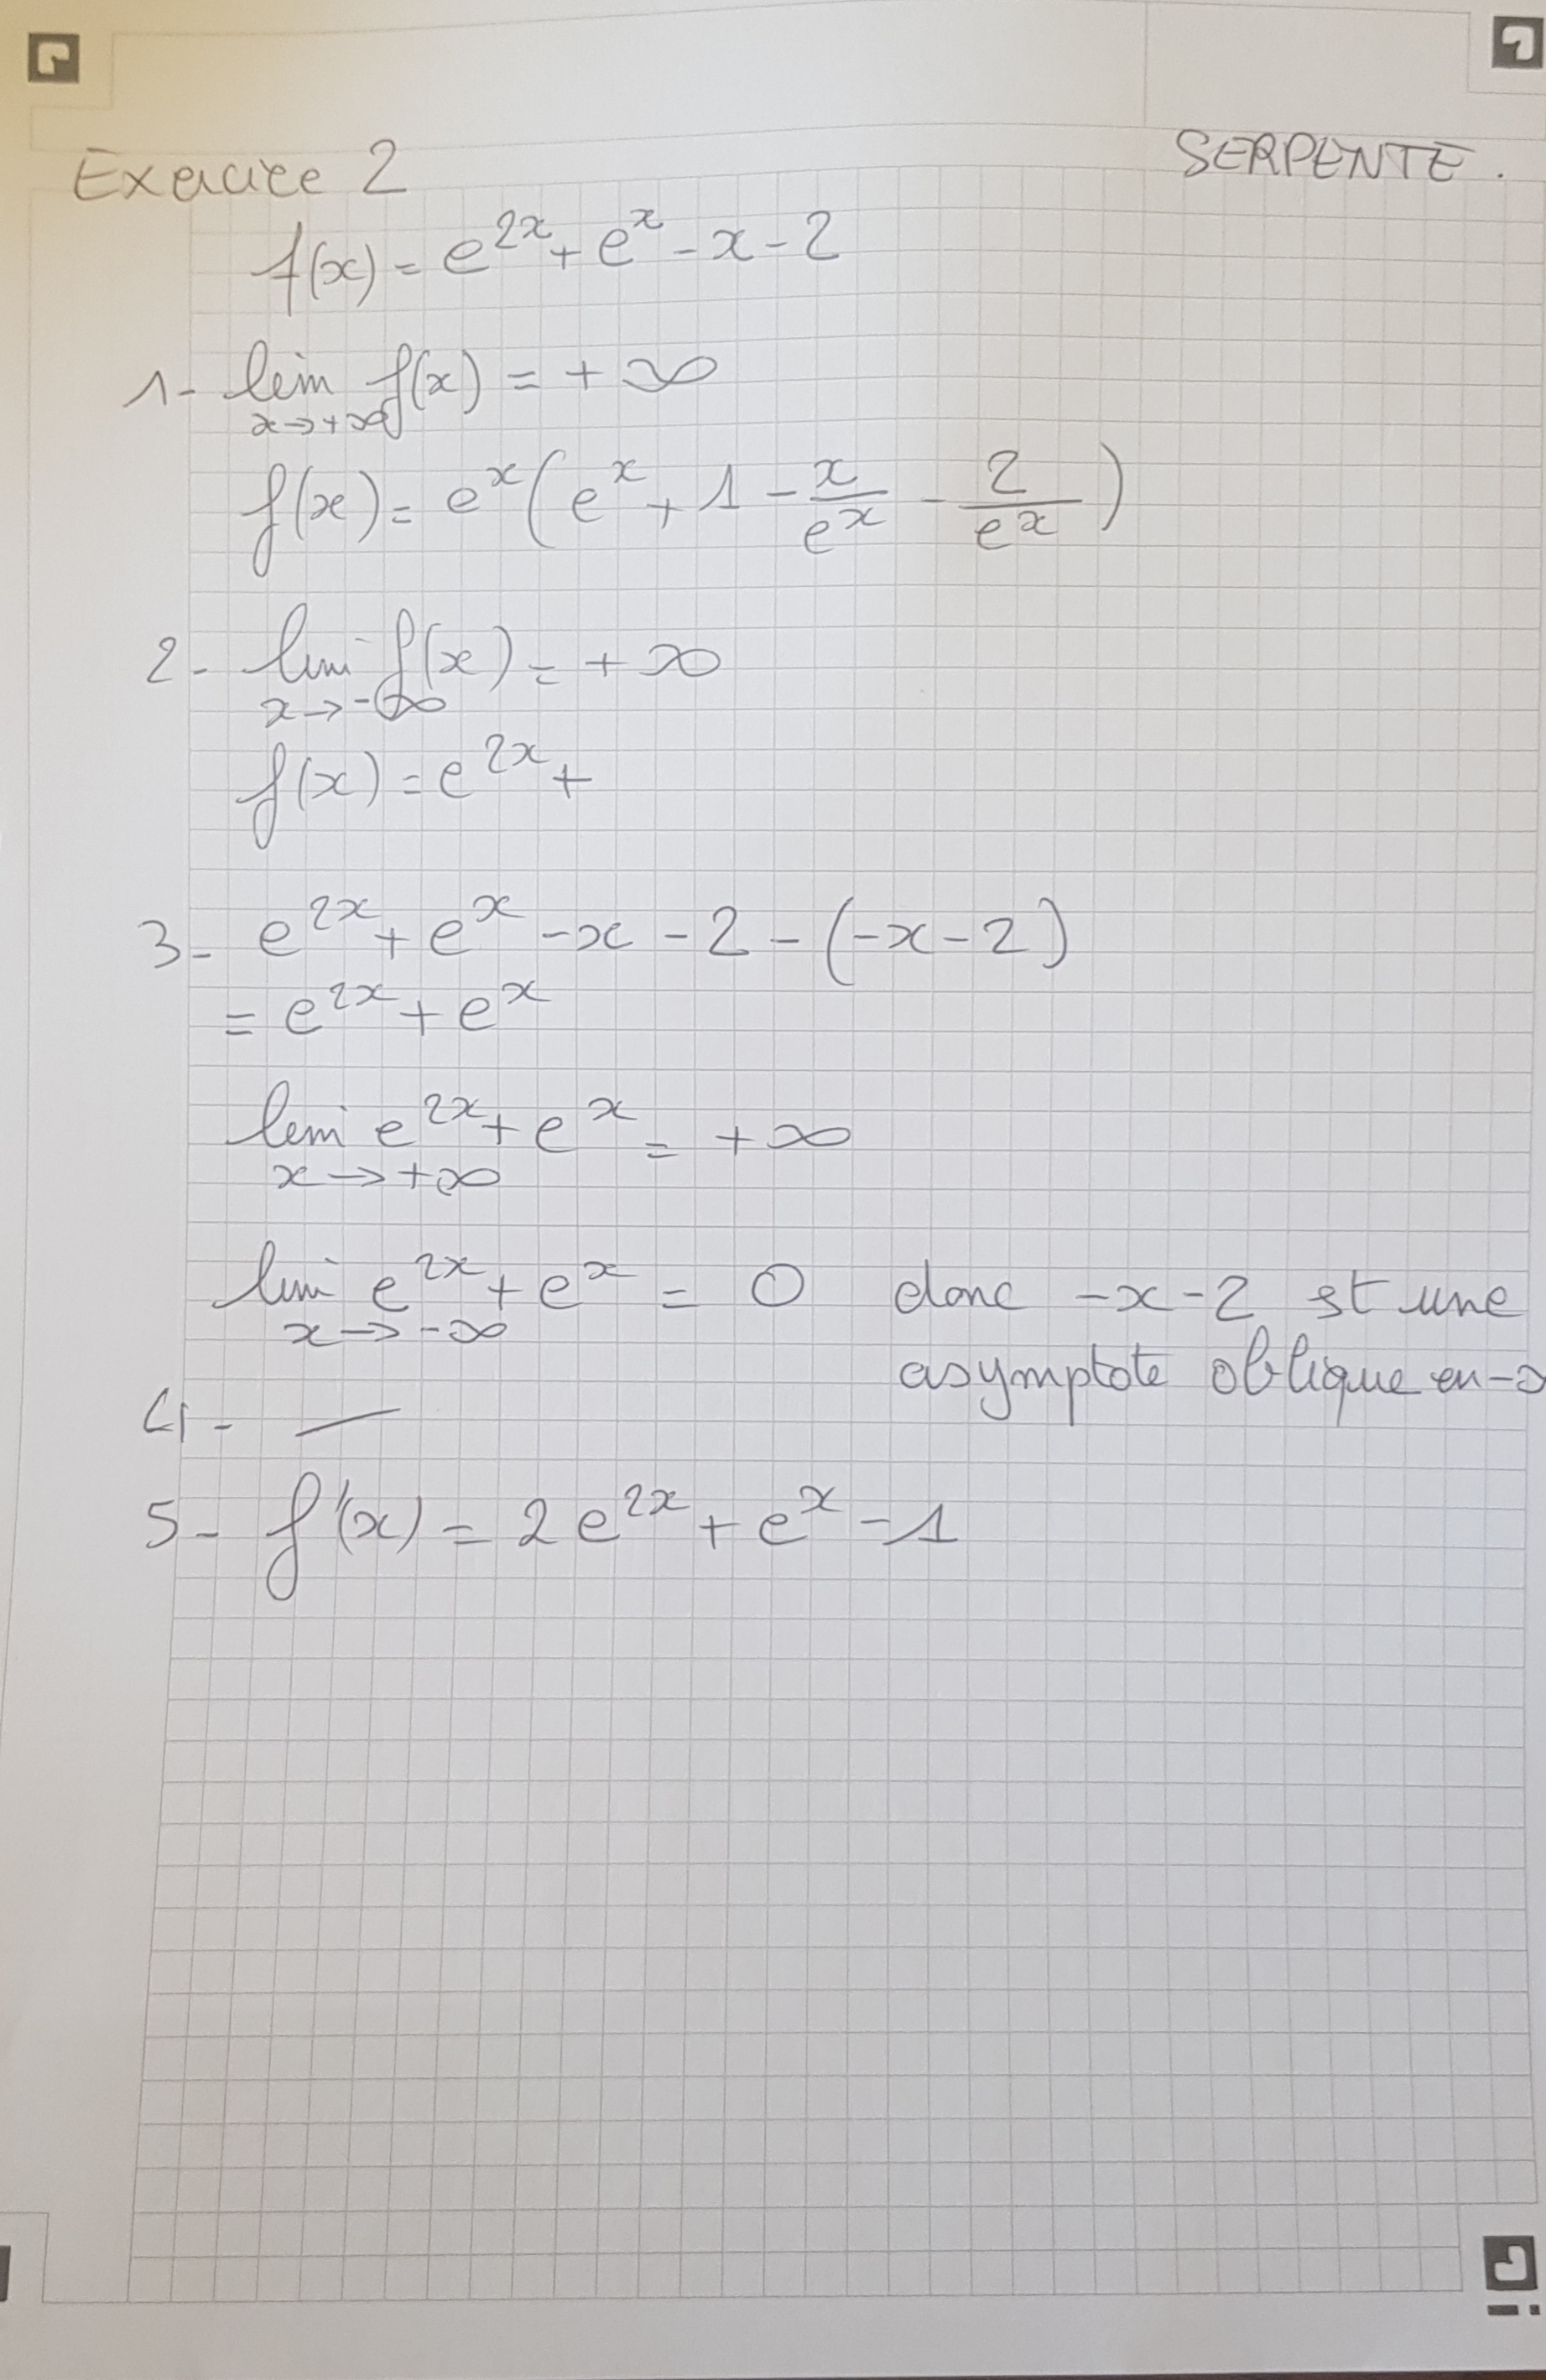 Exercice 2
SERPENTE.
f(x) = e^{2x} + e^x - x - 2
1- lim f(x) = +∞
x→+∞
f(x) = e^x (e^x + 1 - x/e^x - 2/e^x)
2- lim f(x) = +∞
x→-∞
f(x) = e^{2x} +
3- e^{2x} + e^x - x - 2 - (-x - 2)
= e^{2x} + e^x
lim e^{2x} + e^x = +∞
x→+∞
lim e^{2x} + e^x = 0 donc -x-2 est une
x→-∞
asymptote oblique en -∞
4- —
5- f'(x) = 2e^{2x} + e^x - 1